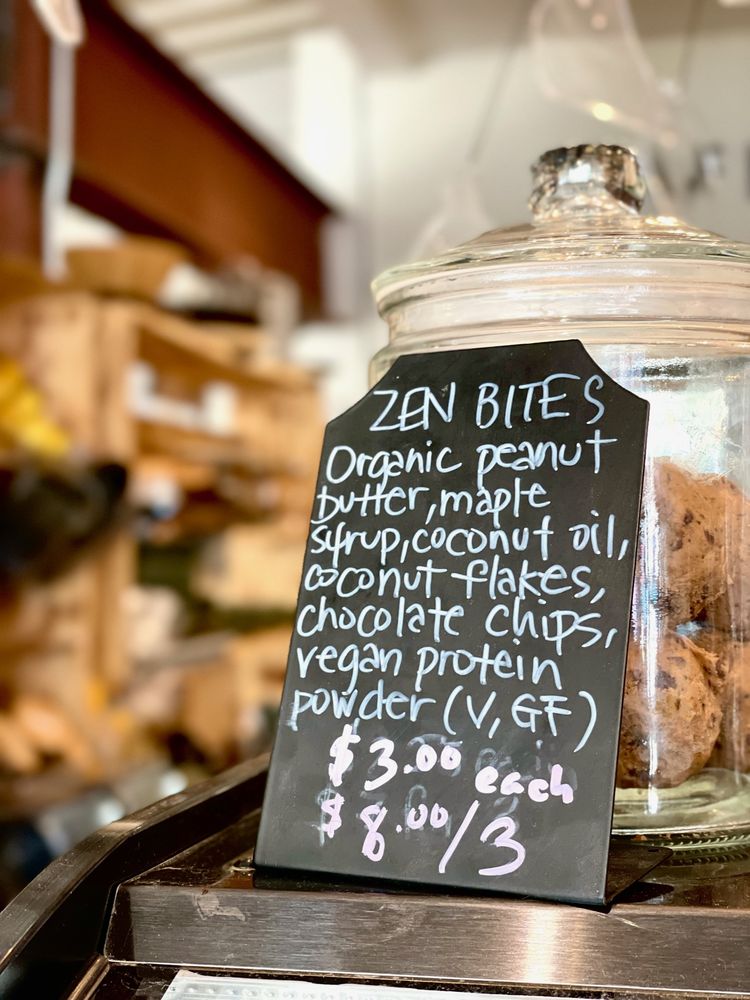 ZEN BITES
Organic peanut
butter, maple
syrup, coconut oil,
coconut flakes,
chocolate chips,
vegan protein
powder (V, GF)
$3.00 each
$8.00/3